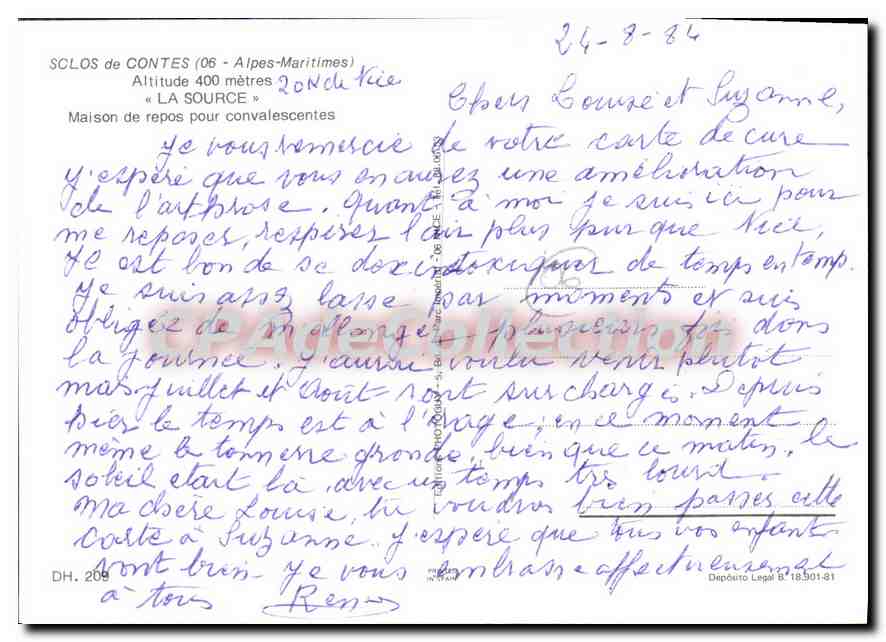 24-8-84
SCLOS de CONTES (06 - Alpes-Maritimes)
Altitude 400 mètres 20 K de Nice
« LA SOURCE »
Maison de repos pour convalescentes
Chers Louise et Suzanne,
Je vous remercie de votre carte de cure
J'espère que vous en aurez une amélioration
de l'artprose. Quant à moi je suis ici pour
me reposer, respirer l'air plus pur que Nice,
Il est bon de se de temps en temp.
Je suis assez lasse par moments et suis
obligée de m'allonger plusieurs fois dans
la journée. J'aurai voulu venir plutôt
mais Juillet et Août sont surchargés. Depuis
hier le temps est à l'orage; en ce moment
même le tonnerre gronde, bien que ce matin, le
soleil était là avec un temps très lourd.
Ma chère Louise, tu voudras bien passer cette
carte à Suzanne. J'espère que tous vos enfants
vont bien. Je vous embrasse affectueusement
à tous
DH. 209
Depósito Legal B. 18.901-81
CPAdeCollection